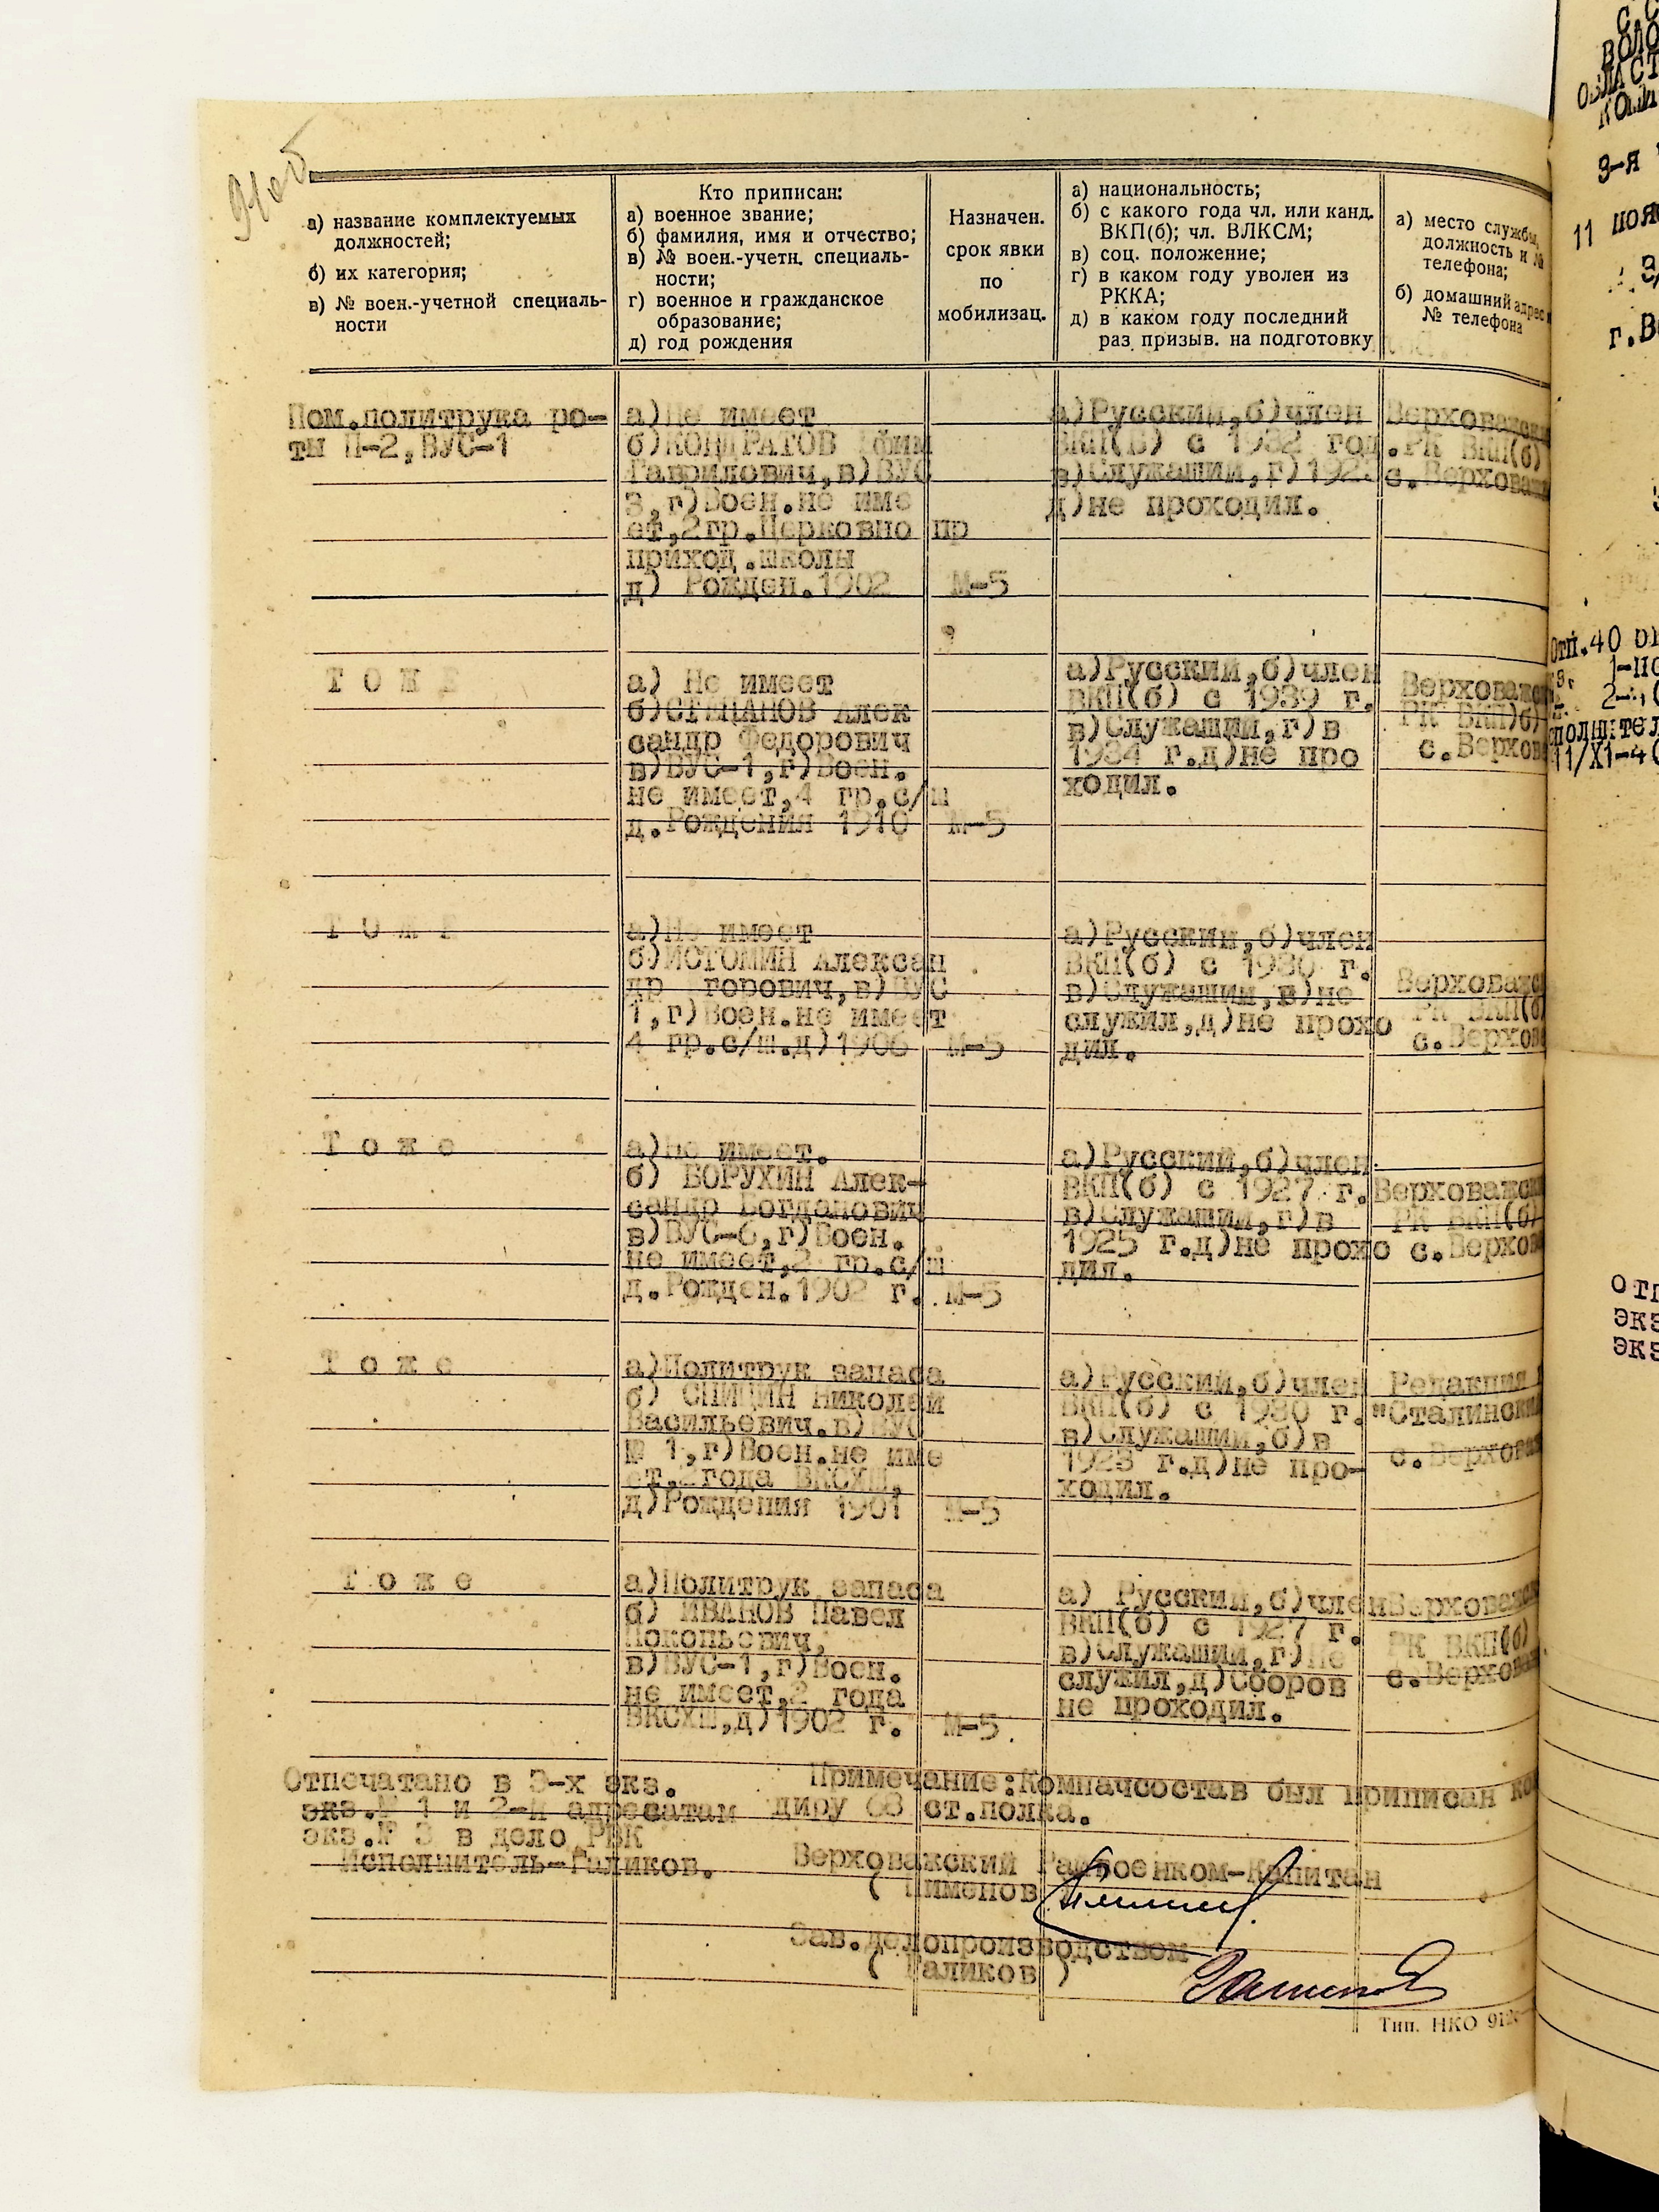 94об
а) название комплектуемых
должностей;
б) их категория;
в) № воен.-учетной специаль-
ности
Кто приписан:
а) военное звание;
б) фамилия, имя и отчество;
в) № воен.-учетн. специаль-
ности;
г) военное и гражданское
образование;
д) год рождения
Назначен.
срок явки
по
мобилизац.
а) национальность;
б) с какого года чл. или канд.
ВКП(б); чл. ВЛКСМ;
в) соц. положение;
г) в каком году уволен из
РККА;
д) в каком году последний
раз призыв. на подготовку
а) место службы,
должность и №
телефона;
б) домашний адрес и
№ телефона
Пом.политрука ро-
ты П-2,ВУС-1
а)Не имеет
б)КОНДРАТОВ Ефим
Гаврилович,в)ВУС
3,г)Воен.не име
ет,2гр.Церковно пр
приход.школы
д) Рожден.1902
М-5
а)Русский,б)член
ВКП(б) с 1932 год.
в)Служащий,г)192
д)не проходил.
Верховажск
РК ВКП(б)
с.Верховаж
Т О Ж Е
а) Не имеет
б)СТЕПАНОВ Алек
сандр Федорович
в)ВУС-1,г)Воен.
не имеет,4 гр.с/ш
д.Рождения 1910
М-5
а)Русский,б)член
ВКП(б) с 1939 г.
в)Служащий,г)в
1934 г.д)не про
ходил.
Верховажск
РК ВКП)б)
с.Верхов
Т О Ж Е
а)Не имеет
б)ИСТОМИН Алексан
др горович,в)ВУС
1,г)Воен.не имеет
4 гр.с/ш.д)1906
М-5
а)Русский,б)член
ВКП(б) с 1930 г.
в)Служащий,в)не
служил,д)не прохо
дил.
Верховажс
РК ВКП(б
с.Верхов
Т о ж е
а)Не имеет.
б) БОРУХИН Алек-
сандр Богданович
в)ВУС-6,г)Воен.
не имеет,2 гр.с/ш
д.Рожден.1902 г.
М-5
а)Русский,б)член
ВКП(б) с 1927 г.
в)Служащий,г)в
1925 г.д)не прохо
дил.
Верховажск
РК ВКП(б)
с.Верхов
Т о ж е
а)Политрук запаса
б) СПИЦИН Николай
Васильевич.в)ВУС
№ 1,г)Воен.не име
ет,2года ВКСХШ,
д)Рождения 1901
М-5
а)Русский,б)член
ВКП(б) с 1930 г.
в)Служащий,б)в
1923 г.д)не про-
ходил.
Редакция
"Сталински
с.Верхова
Т о ж е
а)Политрук запаса
б) ИВАНОВ Павел
Покопьевич,
в)ВУС-1,г)Воен.
не имеет,2 года
ВКСХШ,д)1902 г.
М-5.
а) Русский,б)член
ВКП(б) с 1927 г.
в)Служащий,г)Не
служил,д)Сборов
не проходил.
Верховажск
РК ВКП(б)
с.Верхова
Отпечатано в 3-х экз.
экз.№ 1 и 2-й адресатам
экз.№ 3 в дело РВК
Исполнитель-Галиков.
Примечание:Компачсостав был приписан ко
диру 68 ст.полка.
Верховажский Райвоенком-Капитан
( Пименов
Зав.делопроизводством
( Галиков )
Тип. НКО 912
ВОЛО
ОБЛАСТ
3-я
11 ноя
г.В
Отп.40
2-
11/X1-4
отп
экз
экз